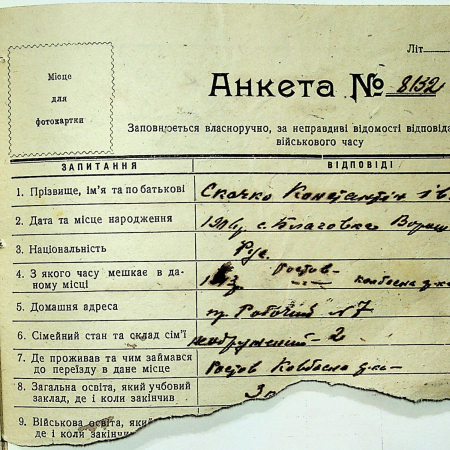 Літ
Місце
для
фотокартки
Анкета № 8132
Заповнюється власноручно, за неправдиві відомості відповіда
військового часу
ЗАПИТАННЯ ВІДПОВІДІ
1. Прізвище, ім'я та по батькові Скачко Константін Ів
2. Дата та місце народження с. Благовка Ворош
3. Національність Рус.
4. З якого часу мешкає в да-
ному місці Ростов-
5. Домашня адреса Робочий №7
6. Сімейний стан та склад сім'ї - 2
7. Де проживав та чим займався
до переїзду в дане місце Ростов Ковбасна
8. Загальна освіта, який учбовий
заклад, де і коли закінчив 3
9. Військова освіта, який
де і коли закінчив